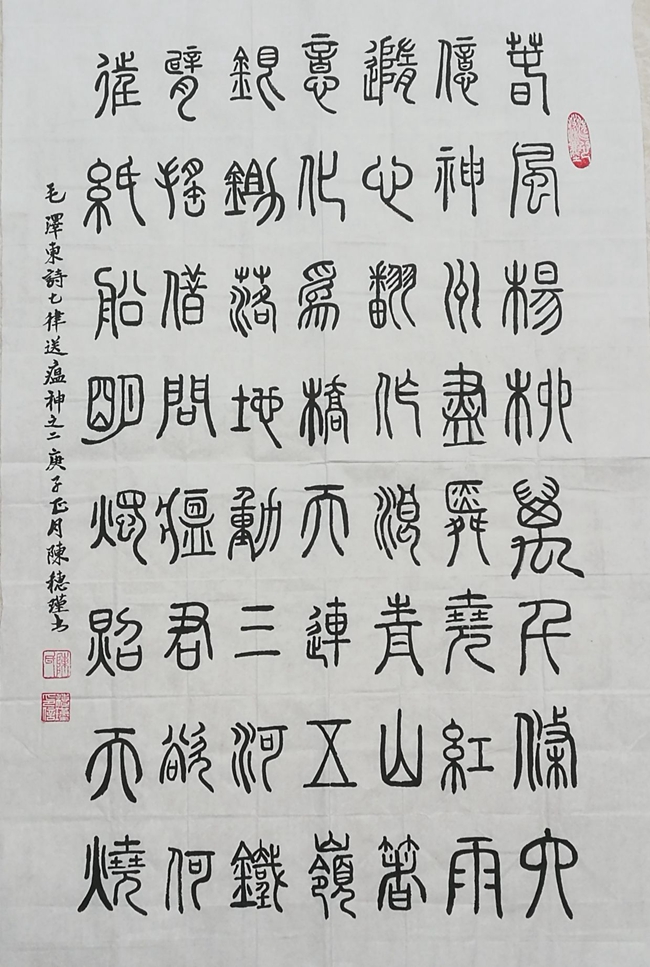 春風楊柳萬千條六
億神州盡舜堯紅雨
隨心翻作浪青山著
意化爲橋天連五嶺
銀鋤落地動三河鐵
臂搖借問瘟君欲何
往紙船明燭照天燒
毛澤東詩七律送瘟神之二庚子正月陳穗瑾书